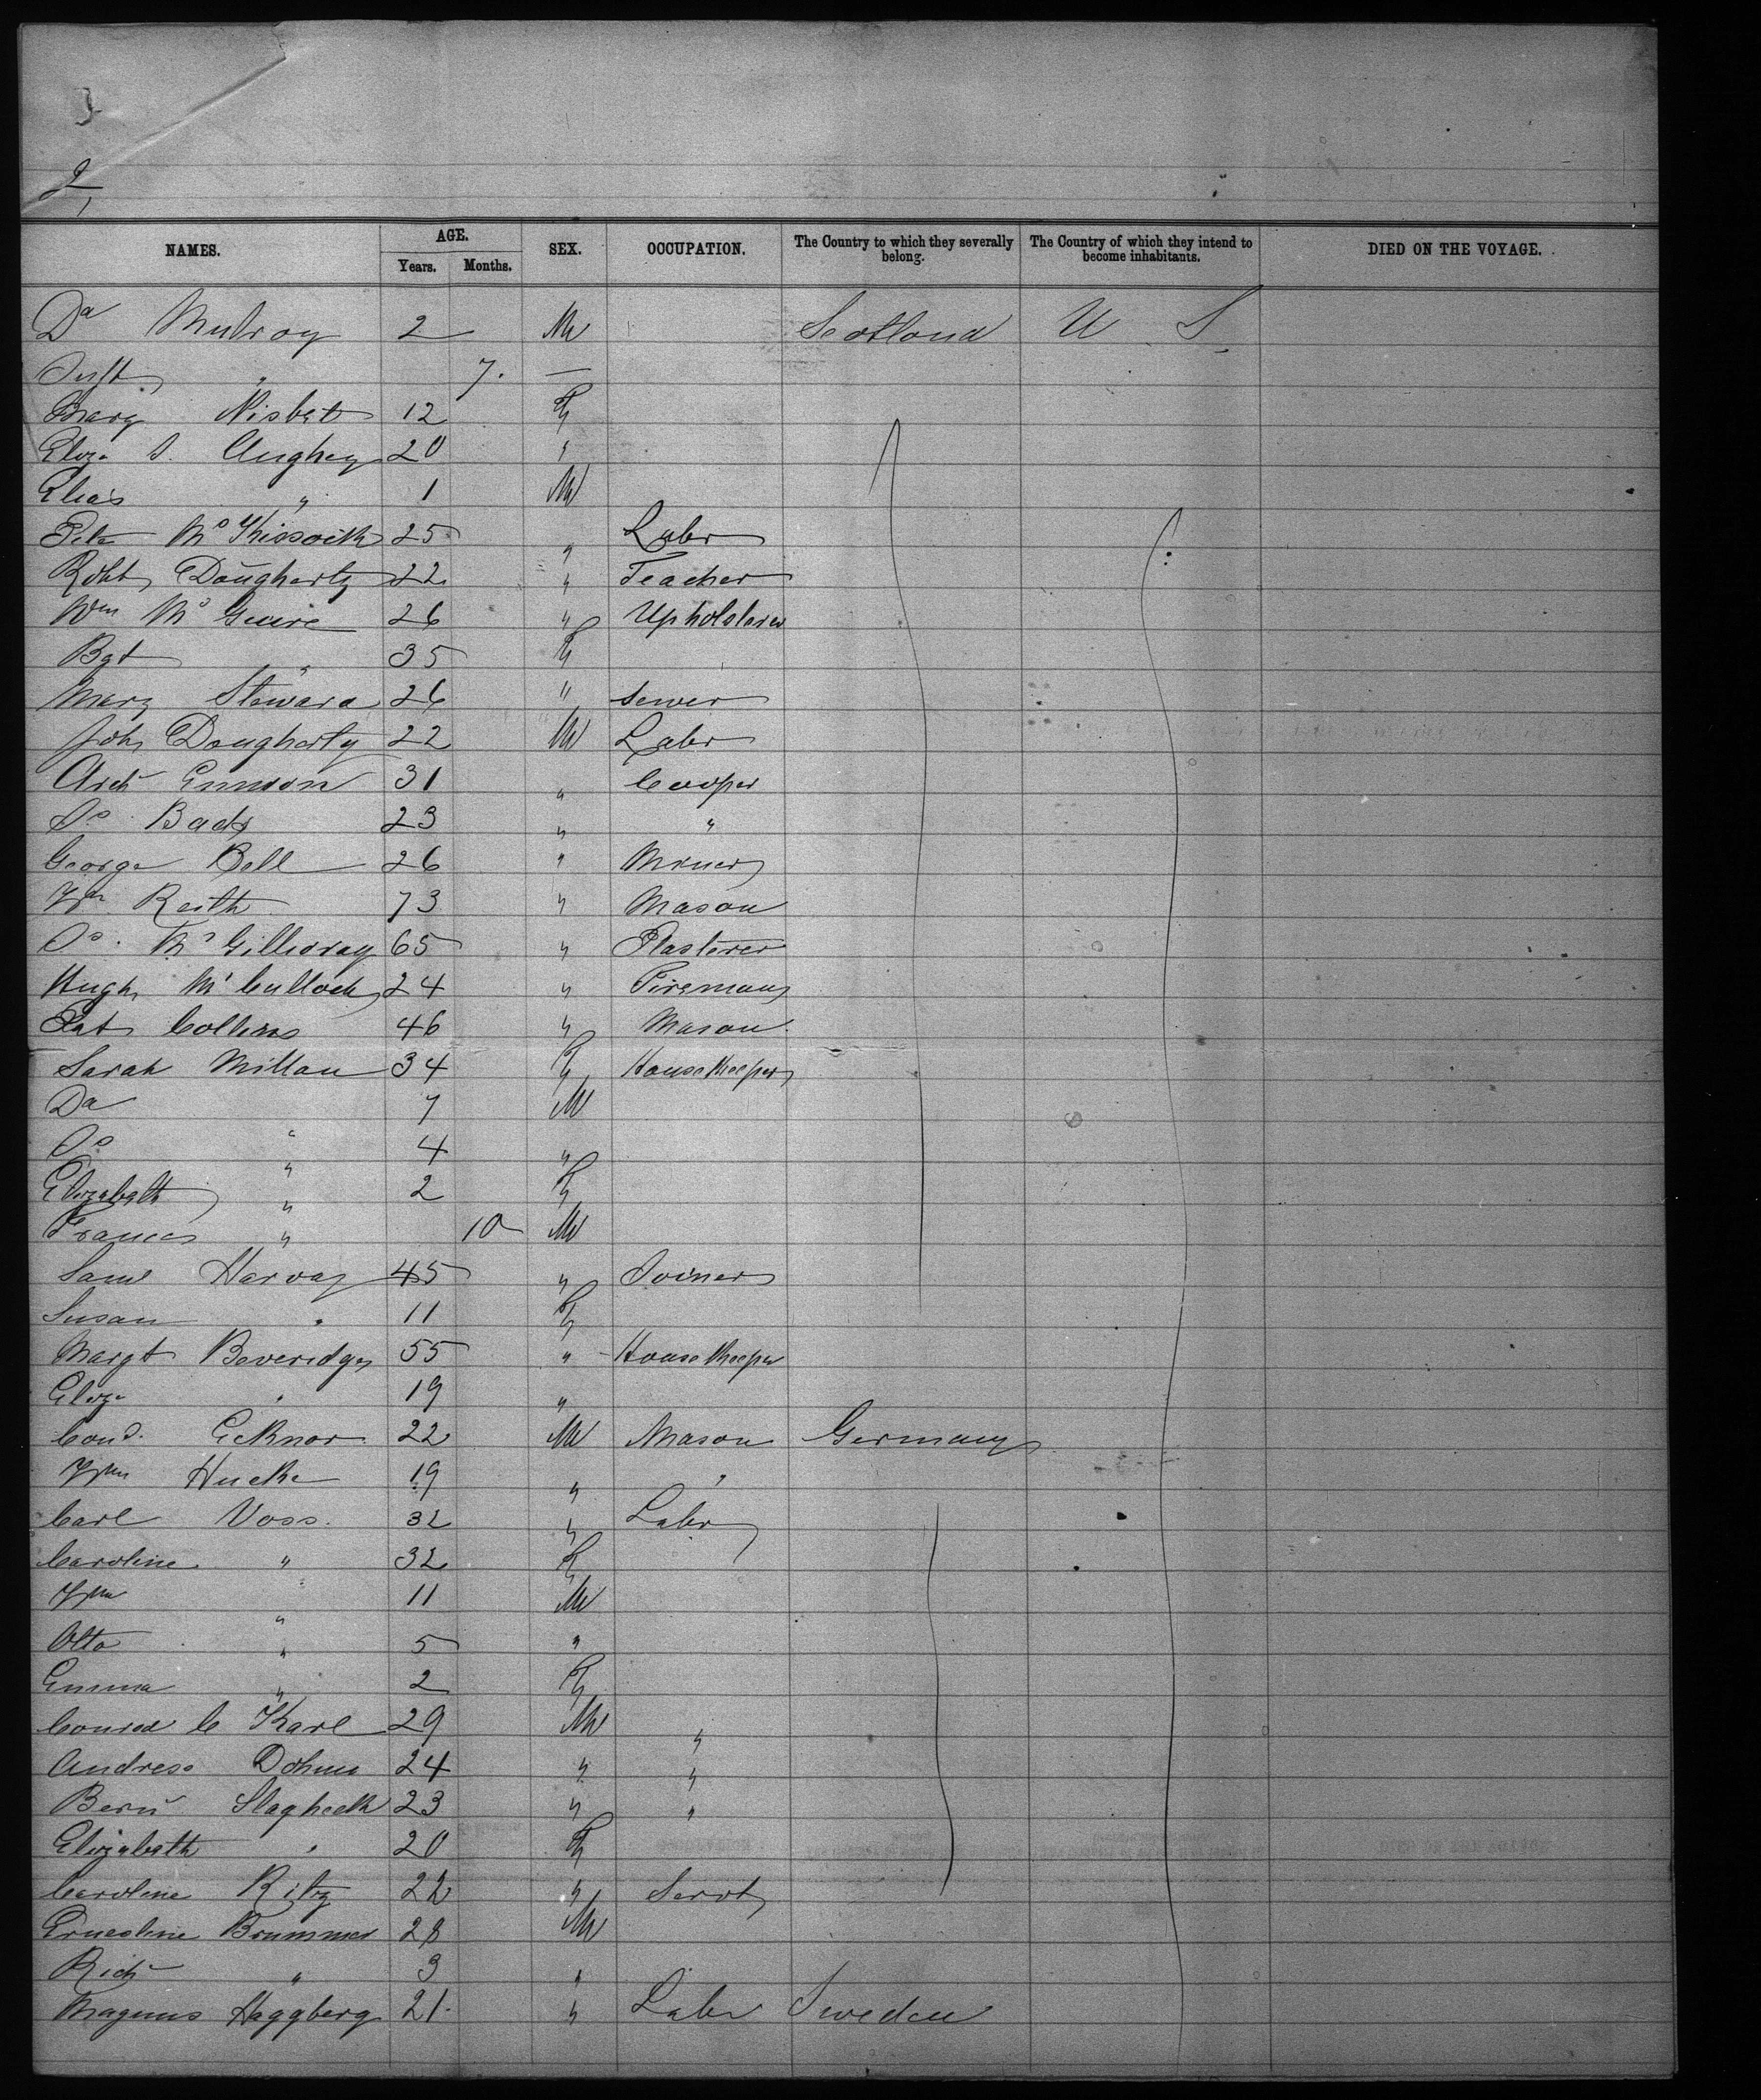 2,
NAMES. AGE. SEX. OCCUPATION. The Country to which they severally belong. The Country of which they intend to become inhabitants. DIED ON THE VOYAGE.
Years. Months.
Da Mulroy 2 M Scotland U S
" 7. —
Mary Nisbet 12 F
Eliza S. Aughey 20 "
Elias " 1 M
Peter Mc Kissoick 25 " Labr
Robt Dougherty 22 " Teacher
Wm Mc Guire 26 " Upholsterer
Bgt " 35 F
Mary Steward 26 " Sewer
John Dougherty 22 M Labr
Archd 31 " Cooper
Jo 23 " "
George Bell 26 " Miner
Wm Reith 73 " Mason
Jo. Mc Gillivray 65 " Plasterer
Hugh Mc Culloch 24 " Fireman
Pat Collins 46 " Mason
Sarah Millan 34 F House Keeper
Da " 7 M
Jo " 4 "
Elizabeth " 2 F
Frances " 10 M
Saml Harvey 45 " Joiner
Susan " 11 F
Margt Beveridge 55 " House Keeper
Eliza " 19 "
Cond. Ecknor 22 M Mason Germany
Wm Hucke 19 " "
Carl Voss. 32 " Labr
Caroline " 32 F
Wm " 11 M
Otto " 5 "
Emma " 2 F
Conrad C Karl 29 M "
Andreas Dohms 24 " "
Bern Slagheck 23 " "
Elizabeth " 20 F
Caroline Ritz 22 " Servt
Ernestine Brummer 28 M
Rich " 3 "
Magnus Haggberg 21. " Labr Sweden